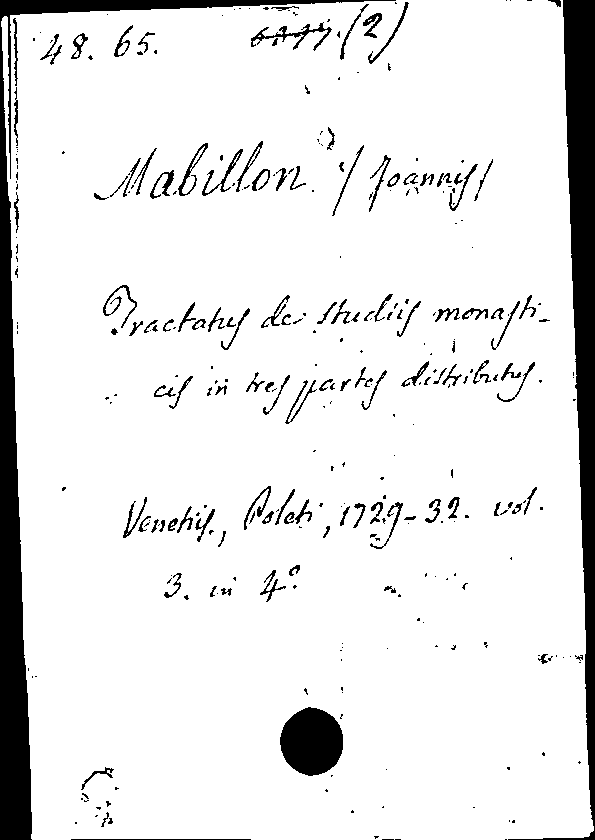 48. 65. (2)
Mabillon / Joannis /
Tractatus de studiis monasti-
cis in tres partes distributus.
Venetiis, Poleti, 1729-32. vol.
3. in 4º